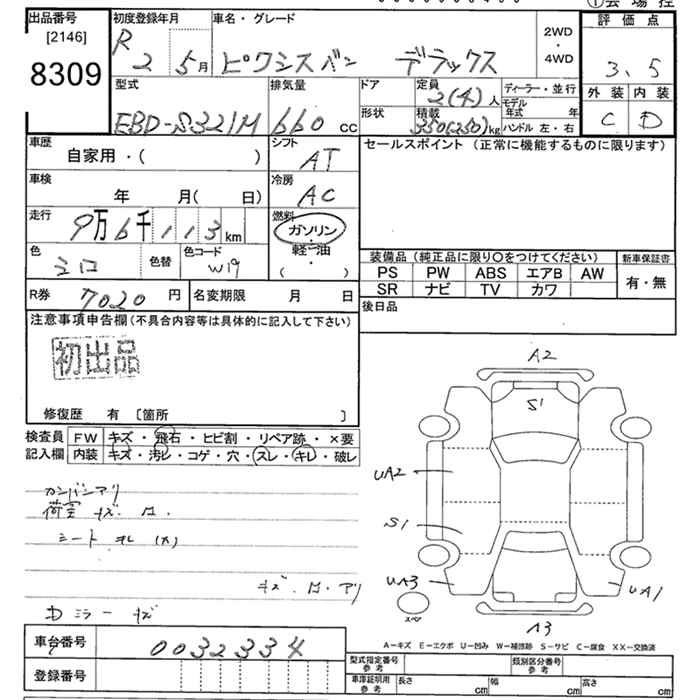 出品番号 初度登録年月 車名・グレード 評価点
[2146]
8309
R 2 5月 ピクシスバン デラックス 2WD・4WD 3.5
外装 内装
C D
型式 排気量 ドア 定員 ディーラー・並行
EBD-S321M 660 cc 2(4)人
形状 積載 モデル年式 年
350(250)kg ハンドル 左・右
車歴 シフト セールスポイント (正常に機能するものに限ります)
自家用・( ) AT
車検 冷房
年 月( 日) AC
走行 燃料
9万6千113km ガソリン・軽油
( )
色 色替 色コード
シロ W19
装備品 (純正品に限り〇をつけてください) 新車保証書
PS PW ABS エアB AW 有・無
SR ナビ TV カワ
R券 7020 円 名変期限 月 日 後日品
注意事項申告欄(不具合内容等は具体的に記入して下さい)
初出品
修復歴 有 〔箇所 〕
検査員 FW キズ・飛石・ヒビ割・リペア跡・×要
記入欄 内装 キズ・汚レ・コゲ・穴・スレ・キレ・破レ
カンバンアリ
荷室 キズ.
シート キレ (大)
Dミラーキズ
A2
S1
UA2
S1
UA3
UA1
スペア
A3
A-キズ E-エクボ U-凹み W-補修跡 S-サビ C-腐食 XX-交換済
車台番号 0032334
登録番号
型式指定番号 参考 類別区分番号 参考
車庫証明用 参考 長さ cm 幅 cm 高さ cm